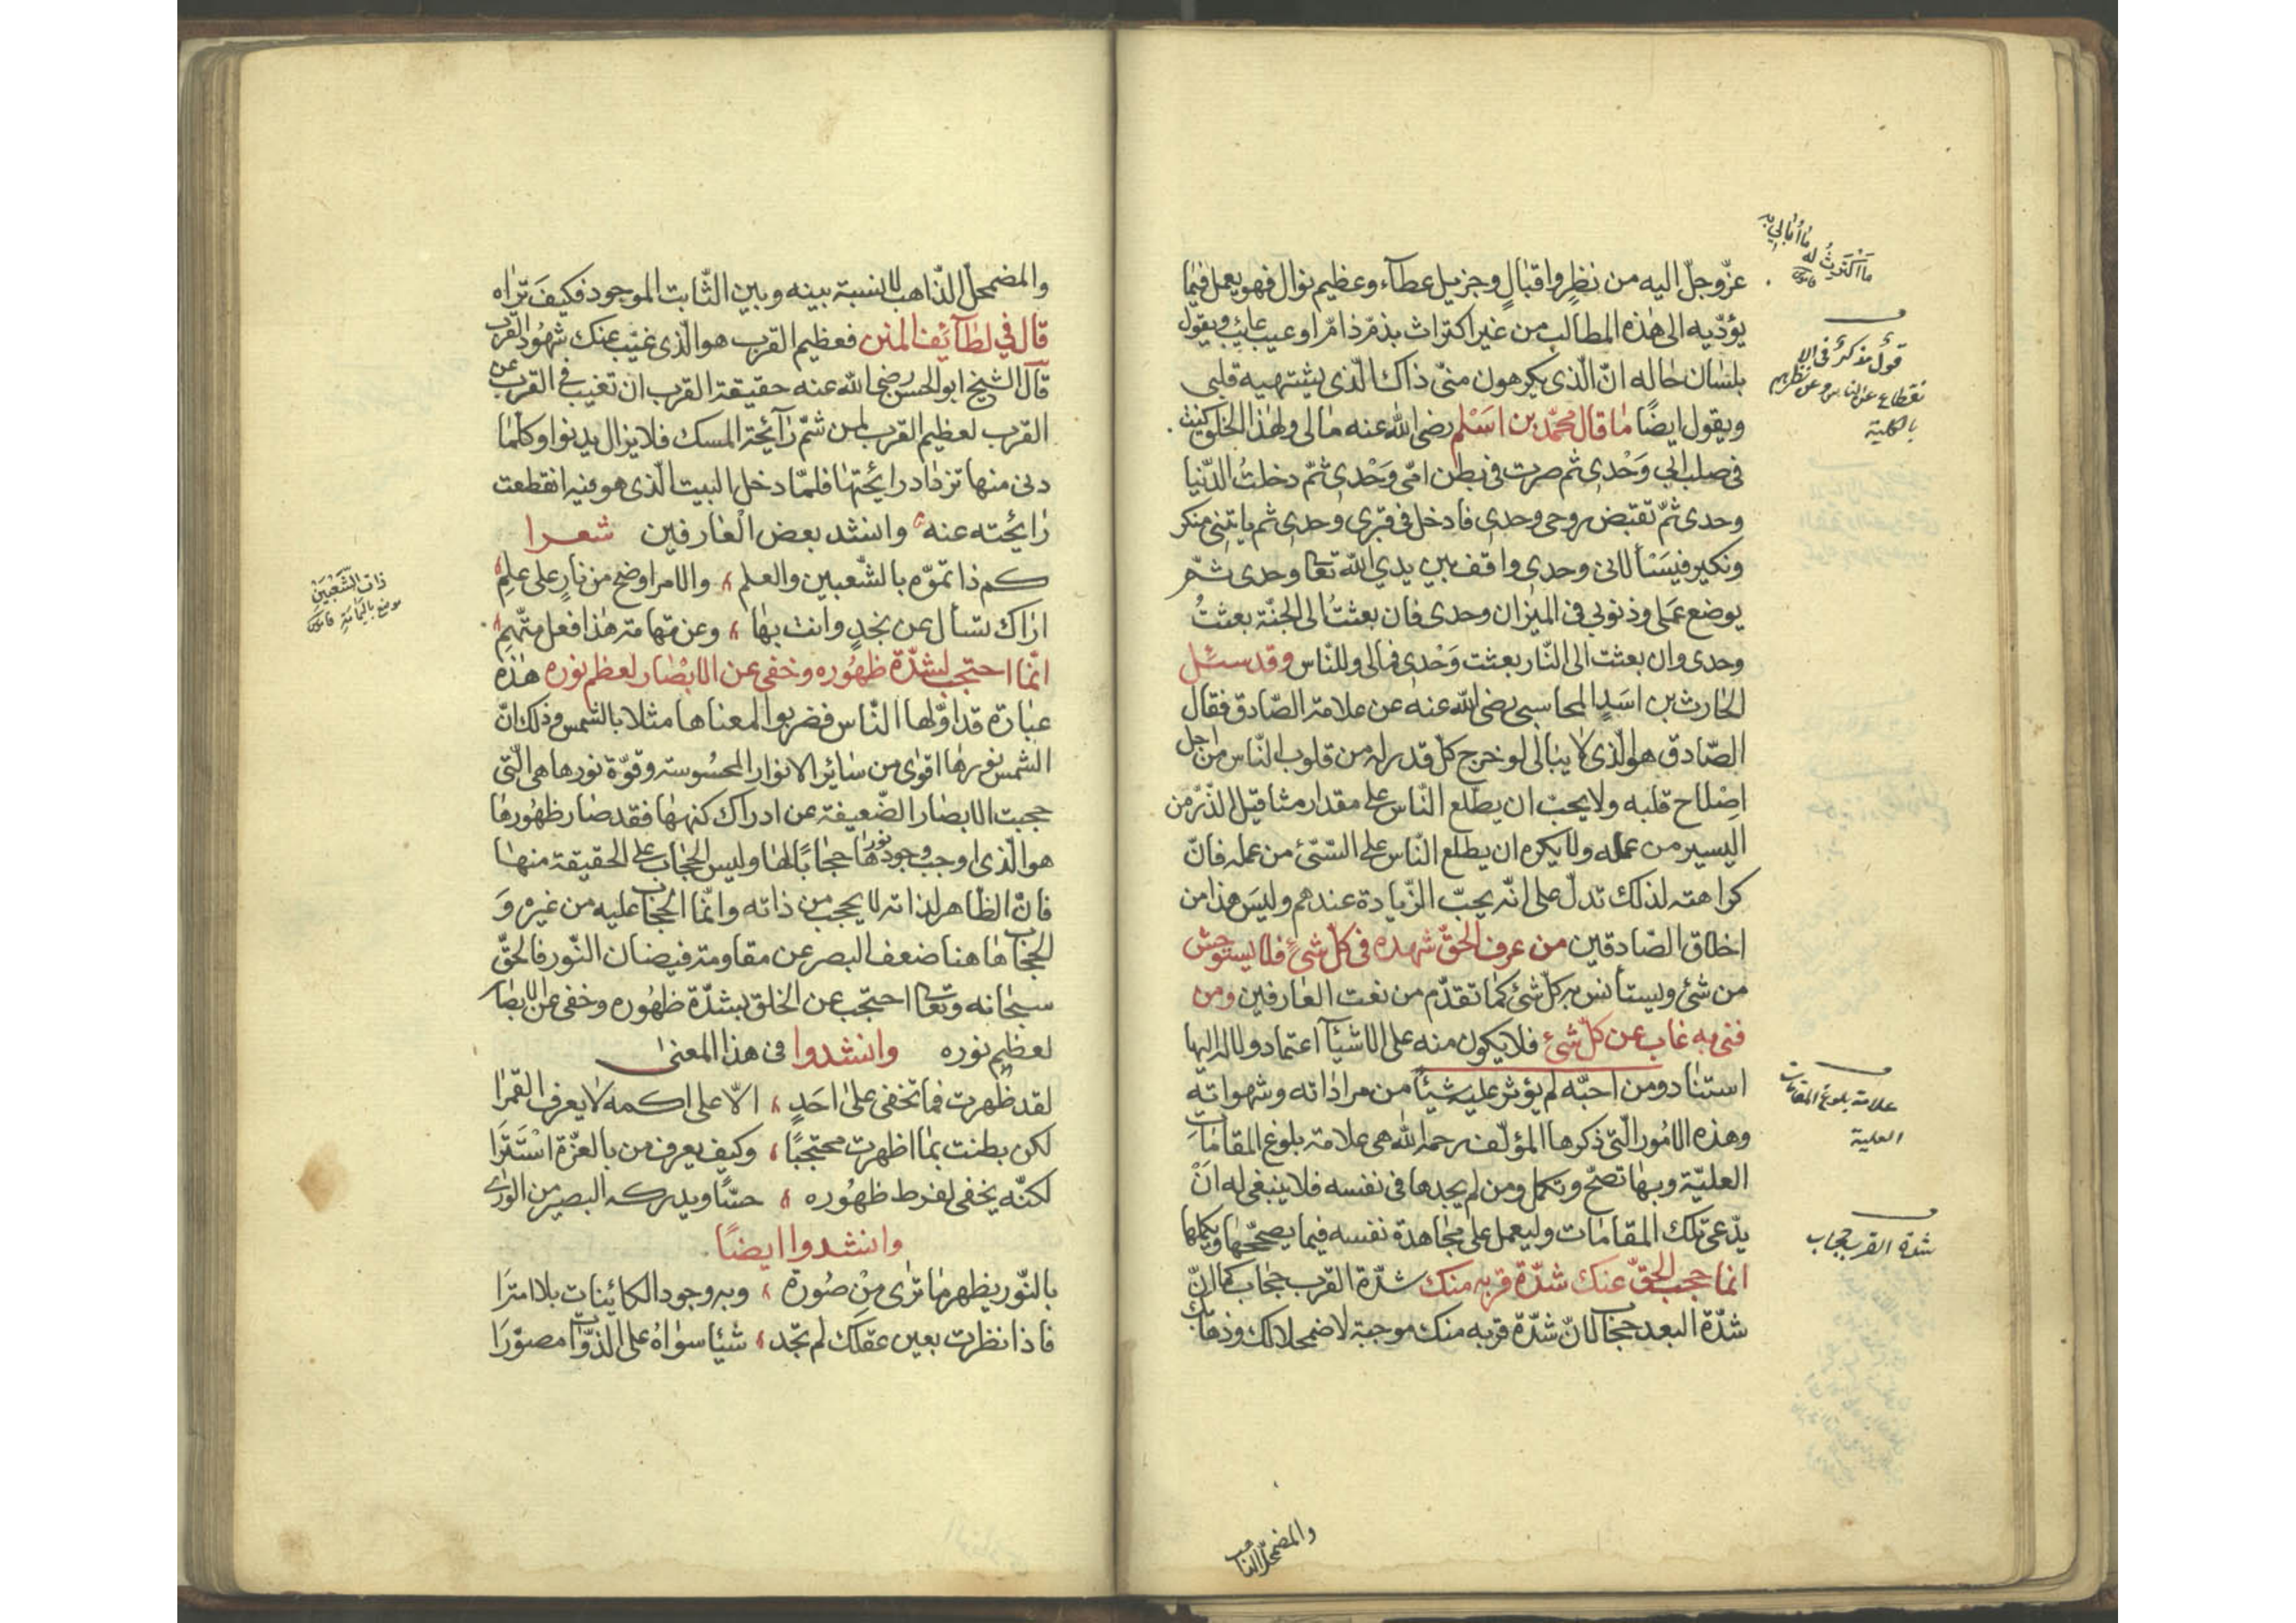 عزّ وجلّ اليه من نظرٍ واقبالٍ وجزيل عطآء وعظيم نوال فهو يعمل فيما
يؤدّيه الى هذه المطالب من غير اكتراث بذمّ ذامّ او عيب عائب ويقول
بلسان حاله انّ الّذى يكرهون منّى ذاك الّذى يشتهيه قلبى
ويقول ايضًا ما قال محمّد بن اسَلم رضى الله عنه مالى ولهذا الخلق كنت
فى صلب ابى وَحْدى ثم صرت فى بطن امّى وَحْدى ثمّ دخلتُ الدّنيا
وحدى ثمّ تقبَض روحى وحدى فادخل فى قبرى وحدى ثم ياتينى منكر
ونكير فيسَئلانى وحدى واقف بين يدي الله تعا وحدى ثمّ
يوضع عملى وذنوبى فى الميزان وحدى فان بعثتُ الى الجنّة بعثتُ
وحدى وان بعثت الى النّار بعثت وَحْدى فمالى وللنّاس وقد سئل
الحارث بن اسَدٍ المحاسبى رضى الله عنه عن علامة الصّادق فقال
الصّادق هو الّذى لا يبالى لو خرج كلّ قدر له من قلوب النّاس من اجل
اصْلاح قلبه ولا يحبّ ان يطّلع النّاس على مقدار مثاقيل الذّرّ من
اليسير من عمله ولا يكره ان يطلع النّاس على السّئ من عمله فانّ
كراهته لذلك تدلّ على انّه يحبّ الزّيادة عندهم وليسَ هذا من
اخلاق الصّادقين من عرف الحقّ شهده فى كلّ شئٍ فلا يستوحش
من شئ ويستأنس به كلّ شئ كما تقدّم من نعت العارفين ومن
فنى به غاب عن كلّ شئ فلا يكون منه على الاشيآء اعتماد ولا له اليها
استناد ومن احبّه لم يؤثر عليه شيئًا من مراداته وشهواته
وهذه الامُور الّتى ذكرها المؤلّف رحمه الله هى علامة بلوغ المقامَات
العليّة وبها تصحّ وتكمل ومن لم يجدها فى نفسه فلا ينبغى له انْ
يدّعى تلك المقامات وليعمل على مجاهدة نفسه فيما يصحّحها ويكملها
انما حجب الحقّ عنك شدّة قربه منك شدّة القرب حجاب كما انّ
شدّة البعد حجاب لانّ شدّة قربه منك موجبة لاضمحلالك وذهابك
والمضمحلّ الذّاهب
مَا اكْتَرِثُ له مَا اُبَالِي به
قاموس
قول مذكر فى الا
نقطاع عن الناس وعن نظرهم
بالكلية
علامة بلوغ المقامات
العلية
شدة القرب حجاب
والمضمحلّ الذّاهب لا نسبة بينه وبين الثّابت الموجود فكيفَ تراه
قال في لطآئف المنن فعظيم القرب هو الّذى غيّب عنك شهُود القرب
قال الشيخ ابو الحسن رضى الله عنه حقيقة القرب ان تغيب فى القرب عن
القرب لعظيم القرب كمن شمّ رآئحة المسك فلا يزال يدنوا وكلّما
دنى منها تزداد رائحتها فلمّا دخل البيت الّذى هو فيه انقطعت
رائحته عنه وانشد بعض العارفين شعرا
كم ذا تموّه بالشّعبين والعلم والامر اوضح من نارٍ على علم
اراك تسأل عن نجدٍ وانت بها وعن تهامة هذا فعل متّهم
انّما احتجب لشدّة ظهُوره وخفى عن الابْصار لعظم نوره هذه
عبارة قد اوّلها النّاس فضربوا لمعناها مثلا بالشمس وذلك انّ
الشمس نورها اقوى من سائر الانوار المحسُوسة وقوّة نورها هى الّتى
حجبت الابصار الضّعيفة عن ادراك كنهها فقد صار ظهُورها
هو الّذى اوجب وجود نورها حجابًا لها وليس الحجاب على الحقيقة منها
فانّ الظاهر لذاته لا يحجب من ذاته وانّما الحجاب عليه من غيره وَ
الحجاب هاهنا ضعف البصر عن مقاومة فيضان النّور فالحقّ
سبحانه وتعا احتجب عن الخلق بشدّة ظهُوره وخفى عن الابصار
لعظيم نوره وانشدوا فى هذا المعنى
لقد ظهرت فما تخفى على احَدٍ الّا على اكمه لا يعرف القمرا
لكن بطنت بما اظهرت محتجبًا وكيف يعرف من بالعزّة اسْتَتَرَا
لكنّه يخفى لفرط ظهُوره حسًّا ويدركه البصير من الورى
وانشدوا ايضًا
بالنّور يظهر ما ترى مِنْ صُورة وبه وجود الكائينات بلا امترَا
فاذا نظرت بعين عقلك لم تجد شيئًا سواهُ على الذّوات مصوّرَا
ذات الشَّعْبَيْن
موضع باليمامة قاموس